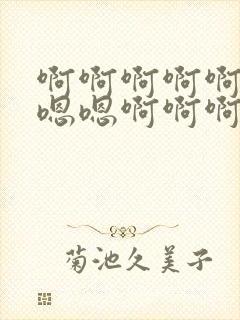 啊啊啊啊啊
嗯嗯啊啊啊
菊池久美子